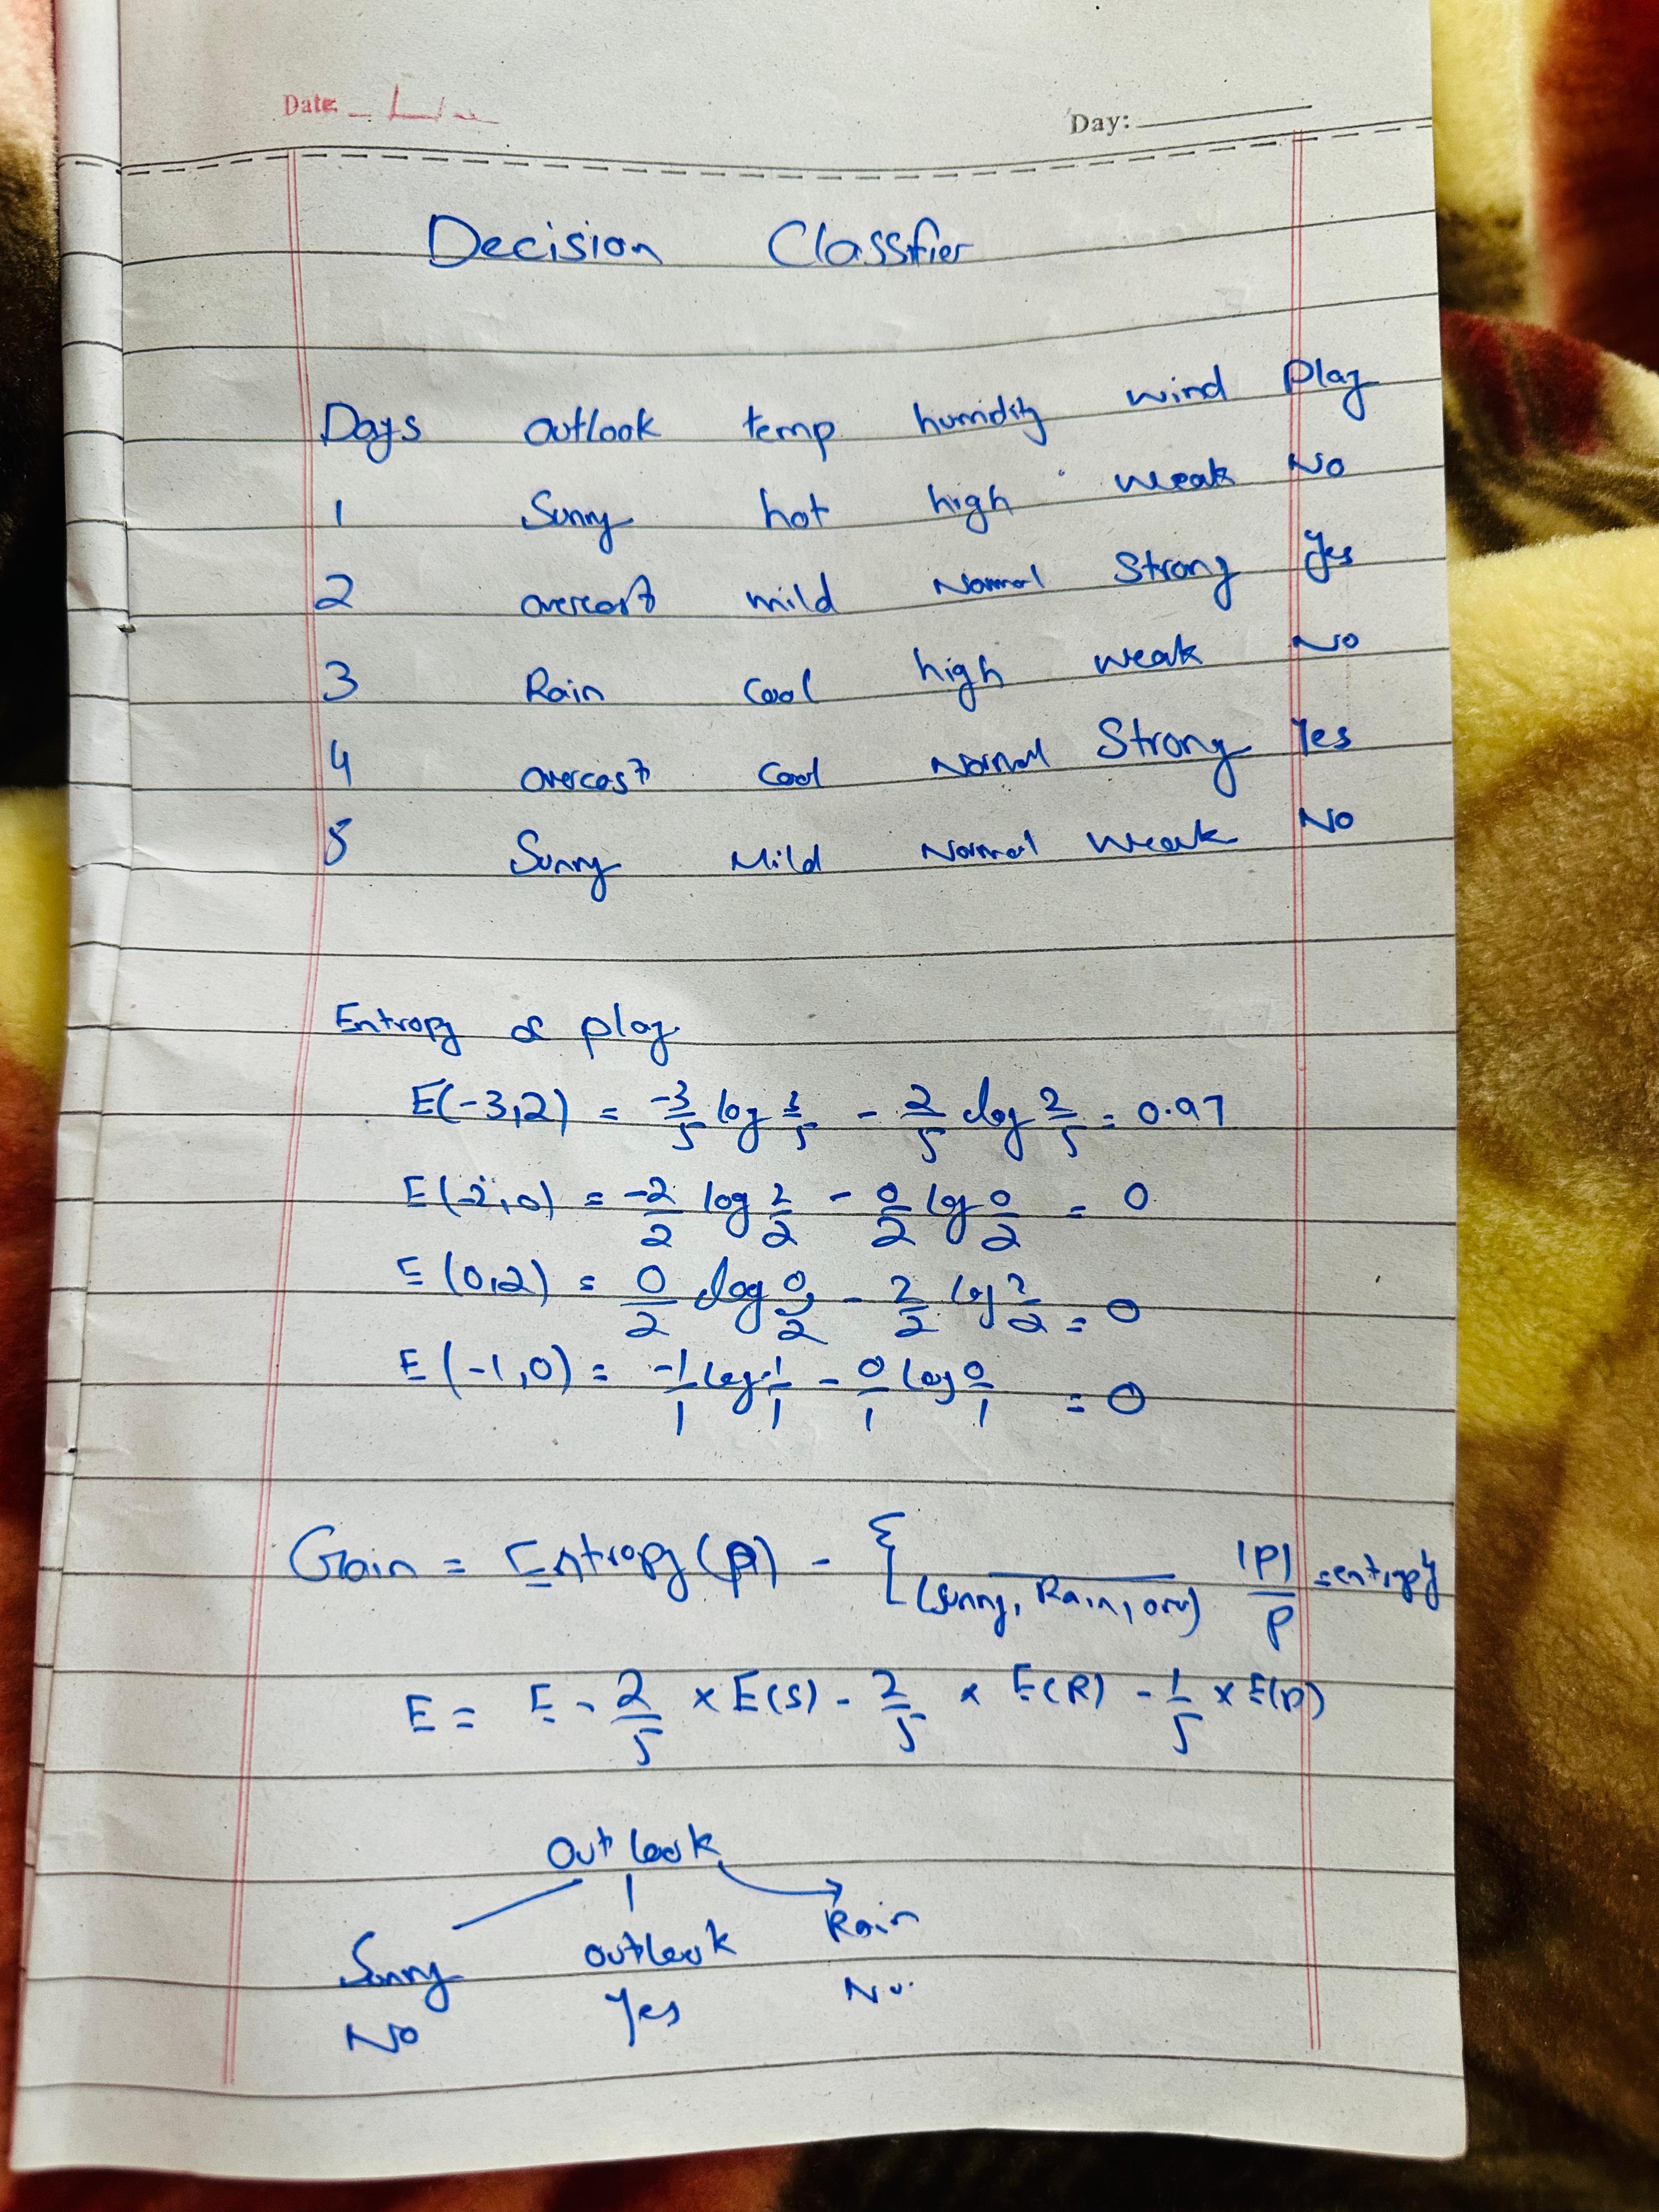 Date
Day:
Decision Classifier
Days outlook temp humidity wind Play
1 Sunny hot high weak No
2 overcast mild Normal Strong Yes
3 Rain Cool high weak No
4 overcast Cool Normal Strong Yes
5 Sunny Mild Normal Weak No
Entropy of play
E(-3,2) = -3/5 log 3/5 - 2/5 log 2/5 = 0.97
E(-2,0) = -2/2 log 2/2 - 0/2 log 0/2 = 0
E(0,2) = 0/2 log 0/2 - 2/2 log 2/2 = 0
E(-1,0) = -1/1 log 1/1 - 0/1 log 0/1 = 0
Gain = Entropy(P) - Σ (Sunny, Rain, over) |P|/P = entropy
E = E - 2/5 × E(S) - 2/5 × E(R) - 1/5 ×
Outlook
Sunny outlook Rain
No Yes No.